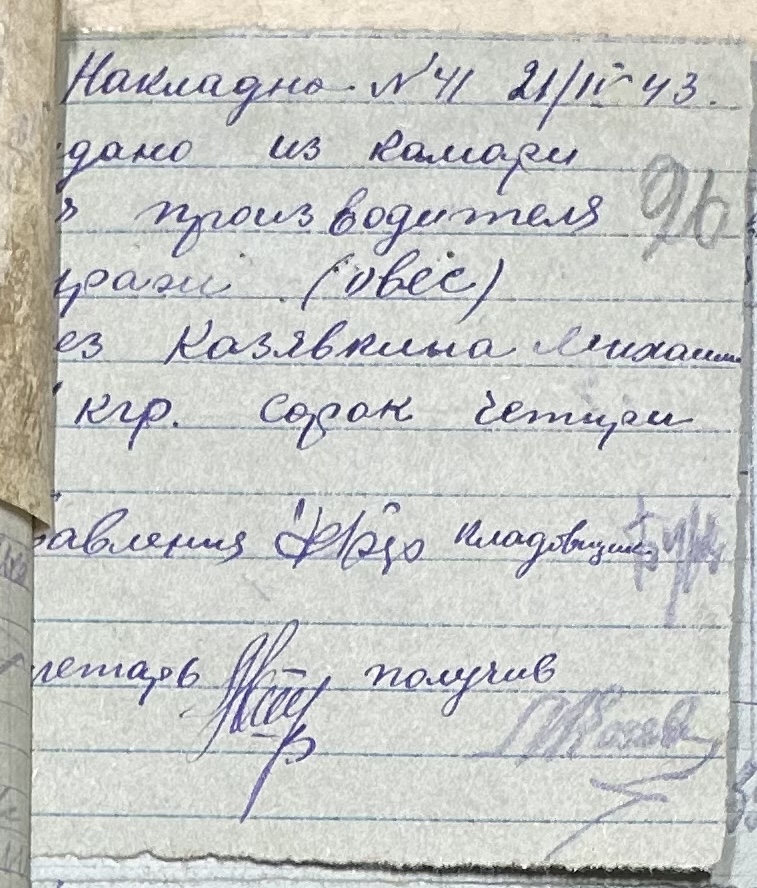 Накладна № 41 21/IV 43.
дано из камари
производителя
96
(овес)
ез Казявкина Михаил
кгр. сорок четири
авления кладовщик
летарь получив